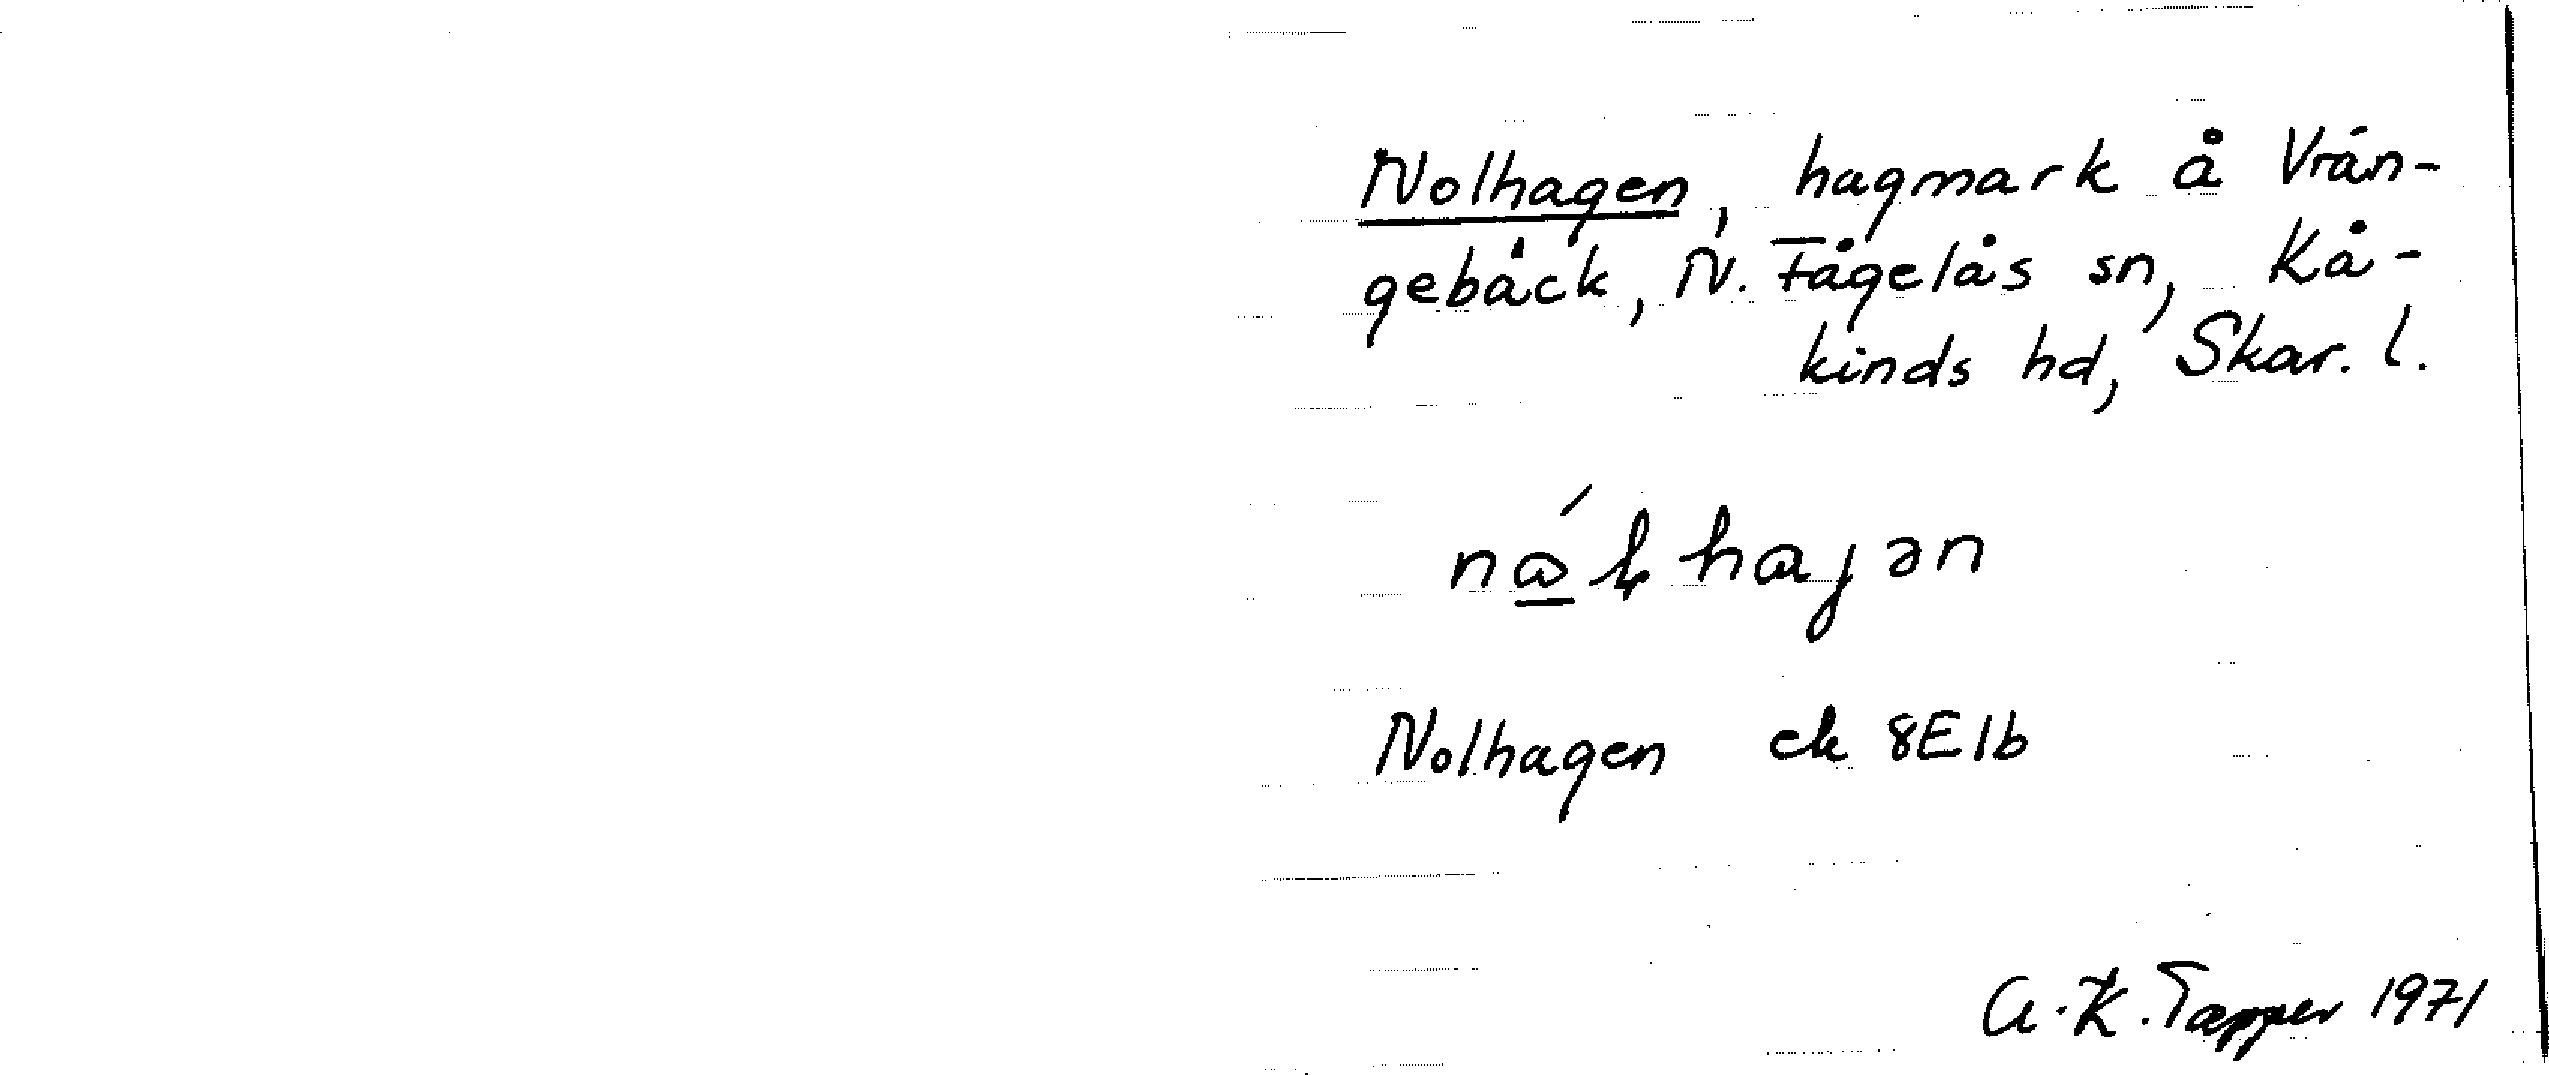 Nolhagen, hagmark å Vrån-
gebäck, N. Fågelås sn, Kå-
kinds hd, Skar. l.
Nolhagen ek 8E1b
A.K. Tapper 1971